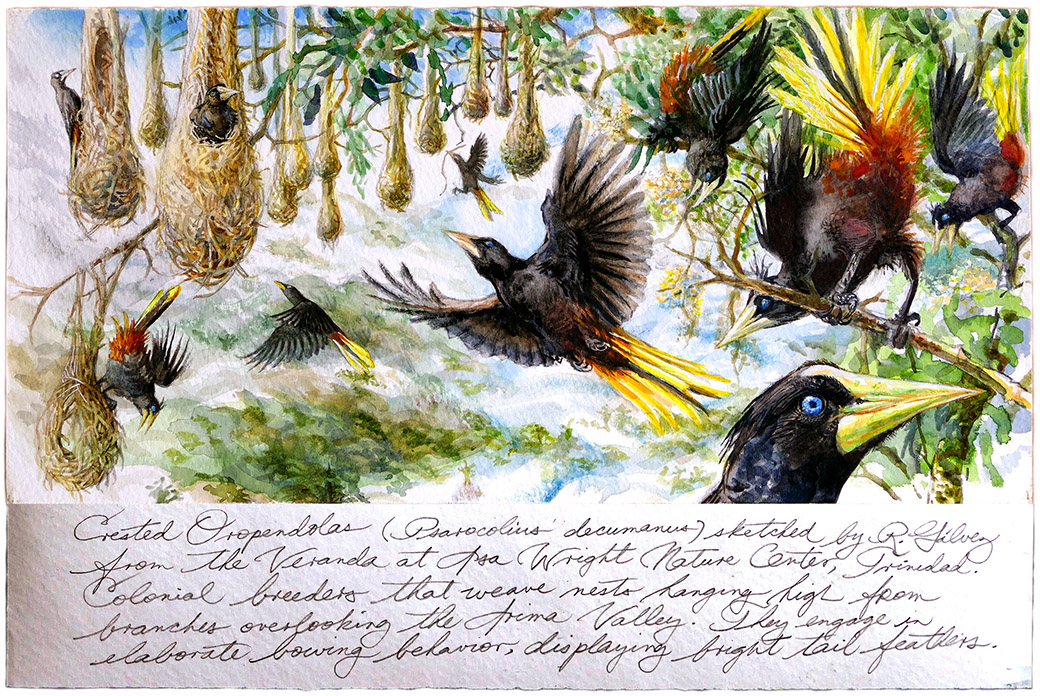 Crested Oropendolas (Psarocolius decumanus) sketched by R. Gilvez
from the Veranda at Asa Wright Nature Center, Trinidad.
Colonial breeders that weave nests hanging high from
branches overlooking the Arima Valley. They engage in
elaborate bowing behavior, displaying bright tail feathers.